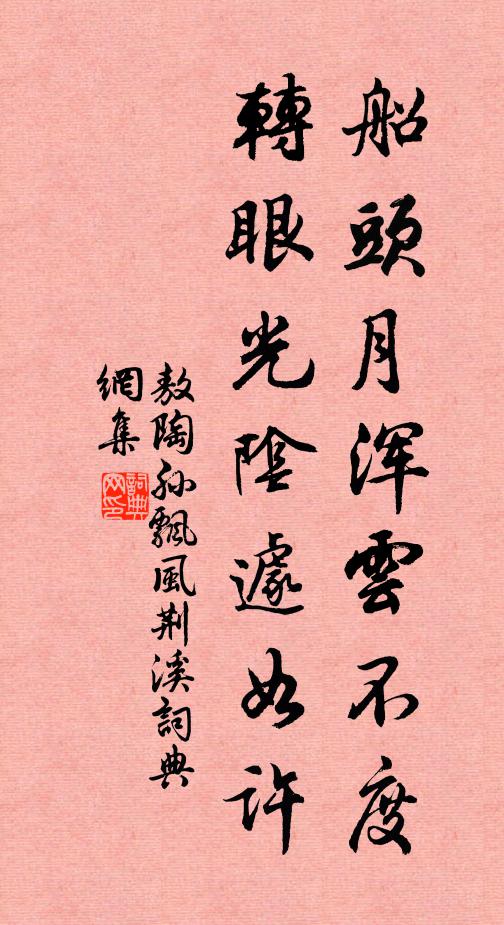 船頭月浑雲不度
轉眼光陰遽如許
敖陶孙飄風荆溪詞典
網集
詞典
网印